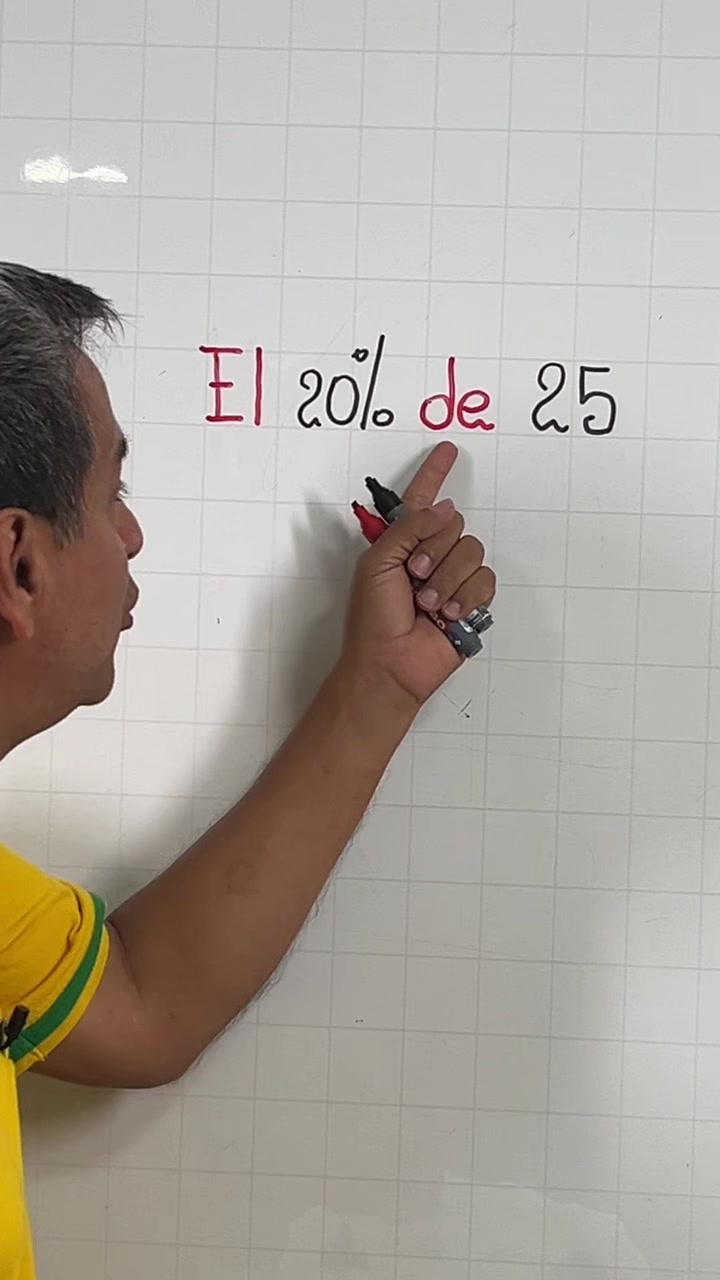 El 20% de 25